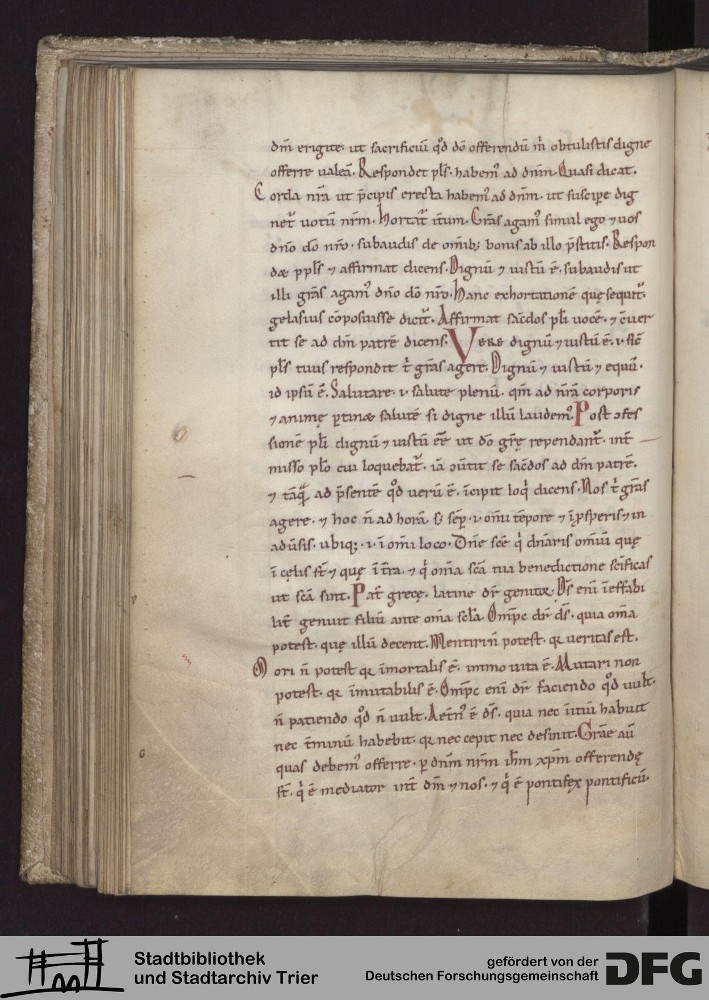 dm̅ erigite. ut sacrificiũ qd̅ dõ offerendũ m̊ obtulistis digne
offerre ualeã. Respondet pls̅. habem᷒ ad dnm̅. Quasi dicat.
Corda nr̅a ut p̅cipis erecta habem᷒ ad dnm̅. ut suscipe dig
net᷑ uotũ nrm̅. hortat᷑ itm̅. Gr̅as agam᷒ simul ego ⁊ uos
dño dõ nr̅o. subaudis de om̅ib; bonis ab illo p̅stitis. Respon
det pp̅ls ⁊ affirmat dicens. Dignũ ⁊ iustũ ẽ. subaudis ut
illi gr̅as agam᷒ dño dõ nr̅o. hanc exhortationẽ quę sequit᷑.
gelasius cõposuisse dicit᷑. Affirmat sac̅dos pl̅i uocẽ. ⁊ c̅uer
tit se ad dm̅ patrẽ dicens. VERE dignũ ⁊ iustũ ẽ. ſ. sic̅
pls̅ tuus respondit t̅ gr̅as agere. Dignũ ⁊ iustũ ⁊ equũ.
id ipsũ ẽ. Salutare. ſ. salute plenũ. qm̅ ad nr̅ã corporis
⁊ animę ꝑtinet salutẽ si digne illũ laudem᷒. Post ɔfes
sionẽ pl̅i dignũ ⁊ iustũ ẽẽ ut dõ gr̅ę rependant᷑. int̅
misso pl̅o cui loquebat᷑. iã ɔũtit se sac̅dos ad dm̅ patrẽ.
⁊ tãq̃ ad p̅sentẽ qd̅ uerũ ẽ. ĩcipit loqͥ dicens. Nos t̅ gr̅as
agere. ⁊ hoc n̅ ad horã. s; semꝑ. ſ. om̅i tẽpore ⁊ ĩ ꝓsperis ⁊ in
adũsis. ubiq;. ſ. ĩ om̅i loco. Dñe scẽ qͥ dn̅aris om̅iũ quę
ĩ cęlis st̅ ⁊ quę ĩ t̅ra. ⁊ qͥ om̅ia scã tua benedictione scĩficas
ut scã sint. Pat᷑ grecę. latine dr̅ genitor. Ds̅ eni ĩeffabi
lit᷑ genuit filiũ ante om̅ia scl̅a. Om̅pc dr̅ ds̅. quia om̅ia
potest. quę illũ decent. Mentiri n̅ potest. qr ueritas est.
Mori n̅ potest qr ĩmortalis ẽ. immo uita ẽ. Mutari non
potest. qr ĩmutabilis ẽ. Om̅pc eni dr̅ faciendo qd̅ uult.
n̅ patiendo qd̅ n̅ uult. Aet̅n᷒ ẽ ds̅. quia nec ĩitiũ habuit
nec t̅minũ habebit. qr nec cepit nec desinit. Gr̅ae aũ
quas debem᷒ offerre. ꝑ dnm̅ nrm̅ ihm̅ xpm̅ offerendę
st̅. qͥ ẽ mediator int̅ dm̅ ⁊ nos. ⁊ qͥ ẽ pontifęx pontificũ.
Stadtbibliothek
und Stadtarchiv Trier
gefördert von der
Deutschen Forschungsgemeinschaft
DFG